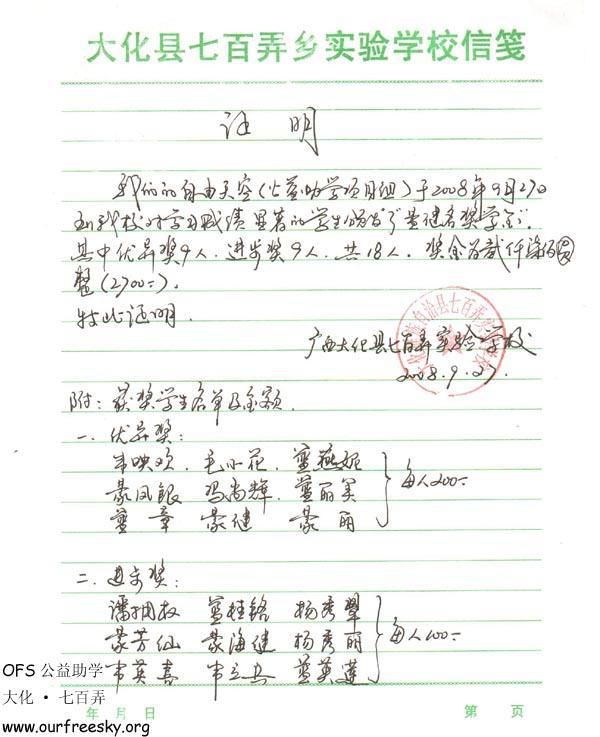 大化县七百弄乡实验学校信笺
证 明
我们的自由天空(公益助学项目组)于2008年9月27日
到我校对学习成绩显著的学生颁发了黄健名奖学金。
其中优异奖9人.进步奖9人.共18人.奖金为贰仟柒佰圆
整(2700=).
特此证明.
广西大化县七百弄实验学校
2008.9.27.
附:获奖学生名单及金额.
一.优异奖:
韦映欢.毛小花.蓝燕妮
蒙凤银 冯尚辉.蓝丽美
蓝章 蒙健 蒙丽
每人200=
二.进步奖:
潘拥权 蓝桂铭 杨秀翠
蒙芳仙 蒙海健 杨秀丽
韦英喜 韦立兵 蓝英莲
每人100=
OFS 公益助学
大化·七百弄
www.ourfreesky.org
年 月 日
第 页